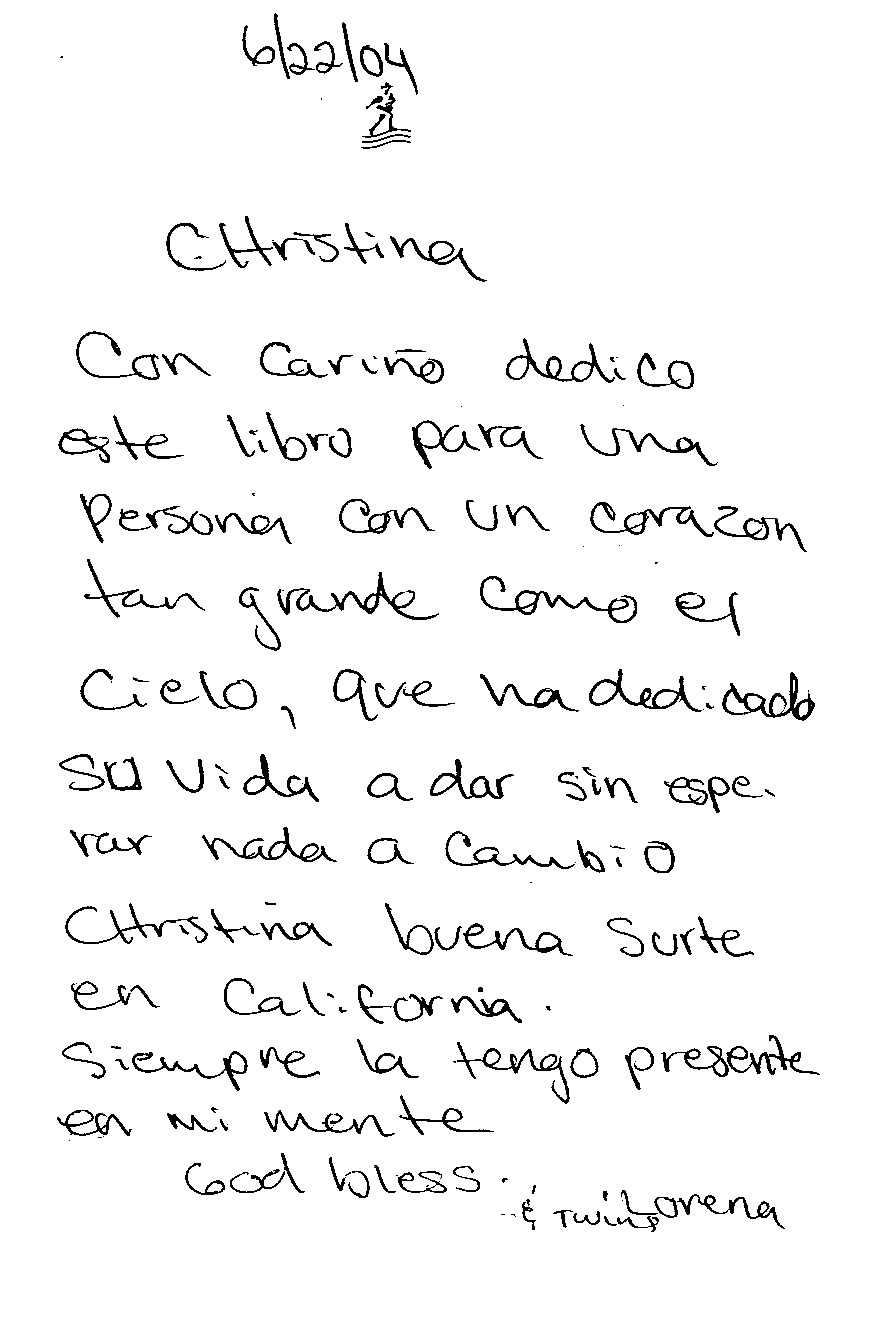 6/22/04
CHristina
Con Cariño dedico
este libro para una
Persona con un corazon
tan grande como el
Cielo, que ha dedicado
su vida a dar sin espe-
rar nada a cambio
CHristina buena Surte
en California.
Siempre la tengo presente
en mi mente
God bless.
Lorena
& Twins